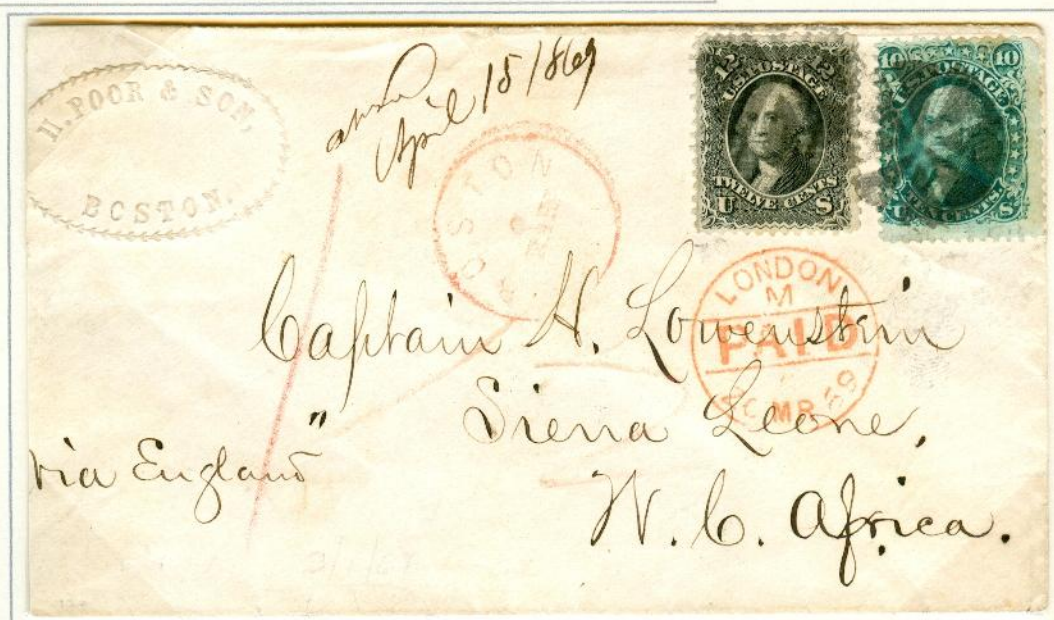 H. POOR & SON,
BOSTON.
April 15/869
BOSTON
12 12
U.S. POSTAGE
TWELVE CENTS
U S
10 10
U.S. POSTAGE
TEN CENTS
U S
LONDON
M
PAID
MR 69
Captain H. Lowenstein
Sierra Leone,
via England"
W. C. Africa.